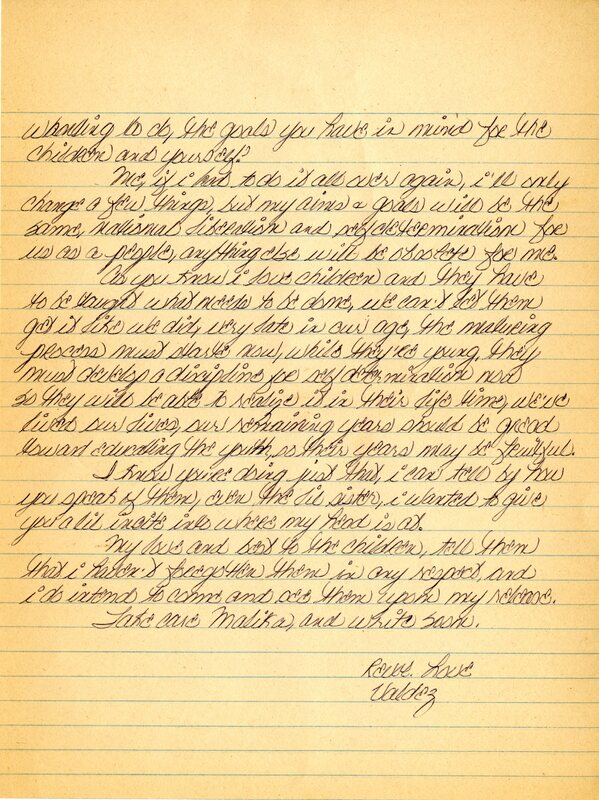 wanting to do, the goals you have in mind for the
children and yourself.
Me, if i had to do it all over again, i'll only
change a few things, but my aims & goals will be the
same, national liberation and self determination for
us as a people, anything else will be obsolete for me.
As you know i love children and they have
to be taught what needs to be done, we can't let them
get it like we did, very late in our age, the maturing
process must start now, while they're young, they
must develop a discipline for self determination now
so they will be able to realize it in their life time, we've
lived our lives, our remaining years should be geared
toward educating the youth, so their years may be fruitful.
I know you're doing just that, i can tell by how
you speak of them, even the lil sister, i wanted to give
you a lil insite into where my head is at.
My love and best to the children, tell them
that i haven't forgotten them in any respect, and
i do intend to come and see them upon my release.
Take care Malika, and write soon.
Revs. Love
Valdez